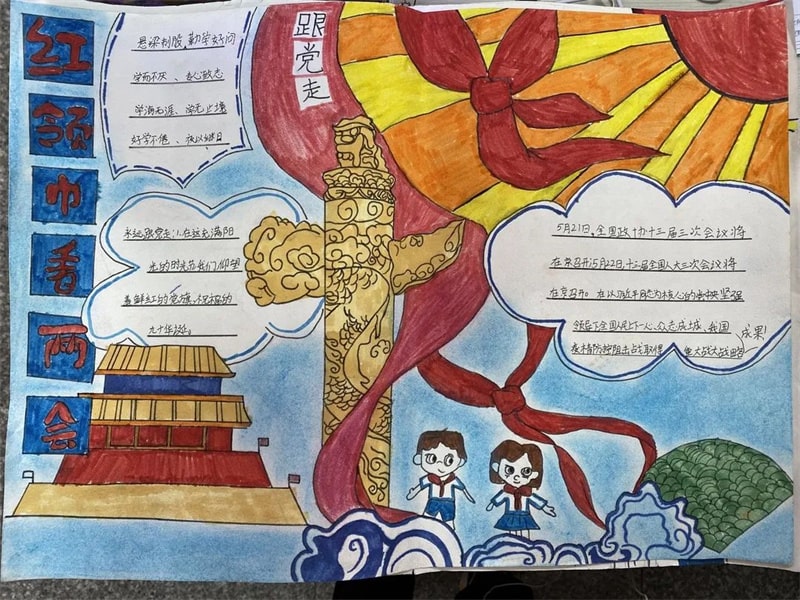 红领巾看两会
跟党走
悬梁刺股、勤学好问
学而不厌、专心致志
学海无涯、学无止境
好学不倦、夜以继日
永远跟党走！在这充满阳
光的时光若我们仰望
着鲜红的党旗，祝福的
九十华诞。
5月21日，全国政协十三届三次会议将
在京召开5月22日，十三届全国人大三次会议将
在京召开。在以习近平同志为核心的党中央坚强
领导下全国人民上下一心、众志成城，我国
疫情防控阻击战取得重大战略
成果！